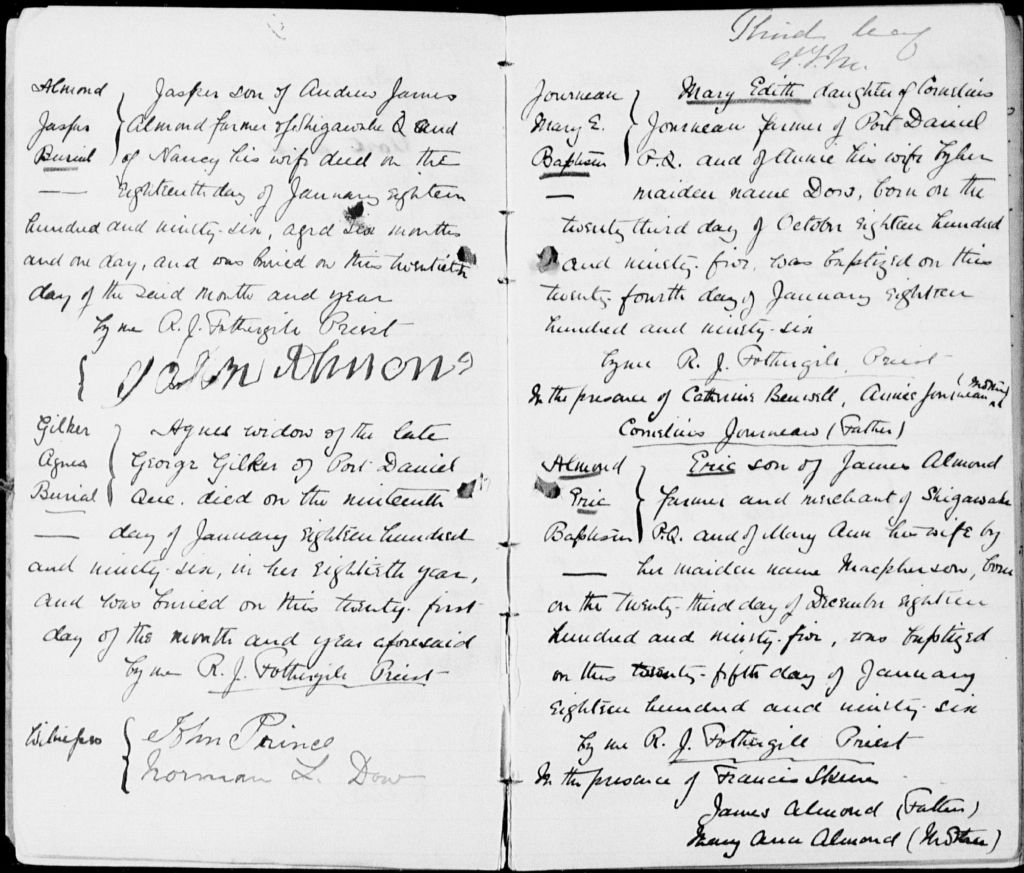 Almond Jasper son of Andrew James
Jasper Almond farmer of Shigawake Q and
Burial of Nancy his wife died on the
— eighteenth day of January eighteen
hundred and ninety-six, aged six months
and one day, and was buried on this twentieth
day of the said month and year
by me R. J. Fothergill Priest
Almond
Gilker Agnes widow of the late
Agnes George Gilker of Port Daniel
Burial Que. died on the nineteenth
— day of January eighteen hundred
and ninety-six, in her eightieth year,
and was buried on this twenty-first
day of the month and year aforesaid
by me R. J. Fothergill Priest
Witnesses John Prince
Norman L. Dow
Third leaf
Journeau Mary Edith daughter of Cornelius
Mary E. Journeau farmer of Port Daniel
Baptism P.Q. and of Annie his wife by her
— maiden name Dow, born on the
twenty third day of October eighteen hundred
and ninety-five, was baptized on this
twenty-fourth day of January eighteen
hundred and ninety-six
by me R. J. Fothergill, Priest
In the presence of Catherine Benwell, Annie Journeau (Mother)
Cornelius Journeau (Father)
Almond Eric son of James Almond
Eric farmer and merchant of Shigawake
Baptism P.Q. and of Mary Ann his wife by
— her maiden name Macpherson, born
on the twenty-third day of December eighteen
hundred and ninety-five, was baptized
on this twenty-fifth day of January
eighteen hundred and ninety-six
by me R. J. Fothergill Priest
In the presence of Francis Skene
James Almond (Father)
Mary Ann Almond (Mother)